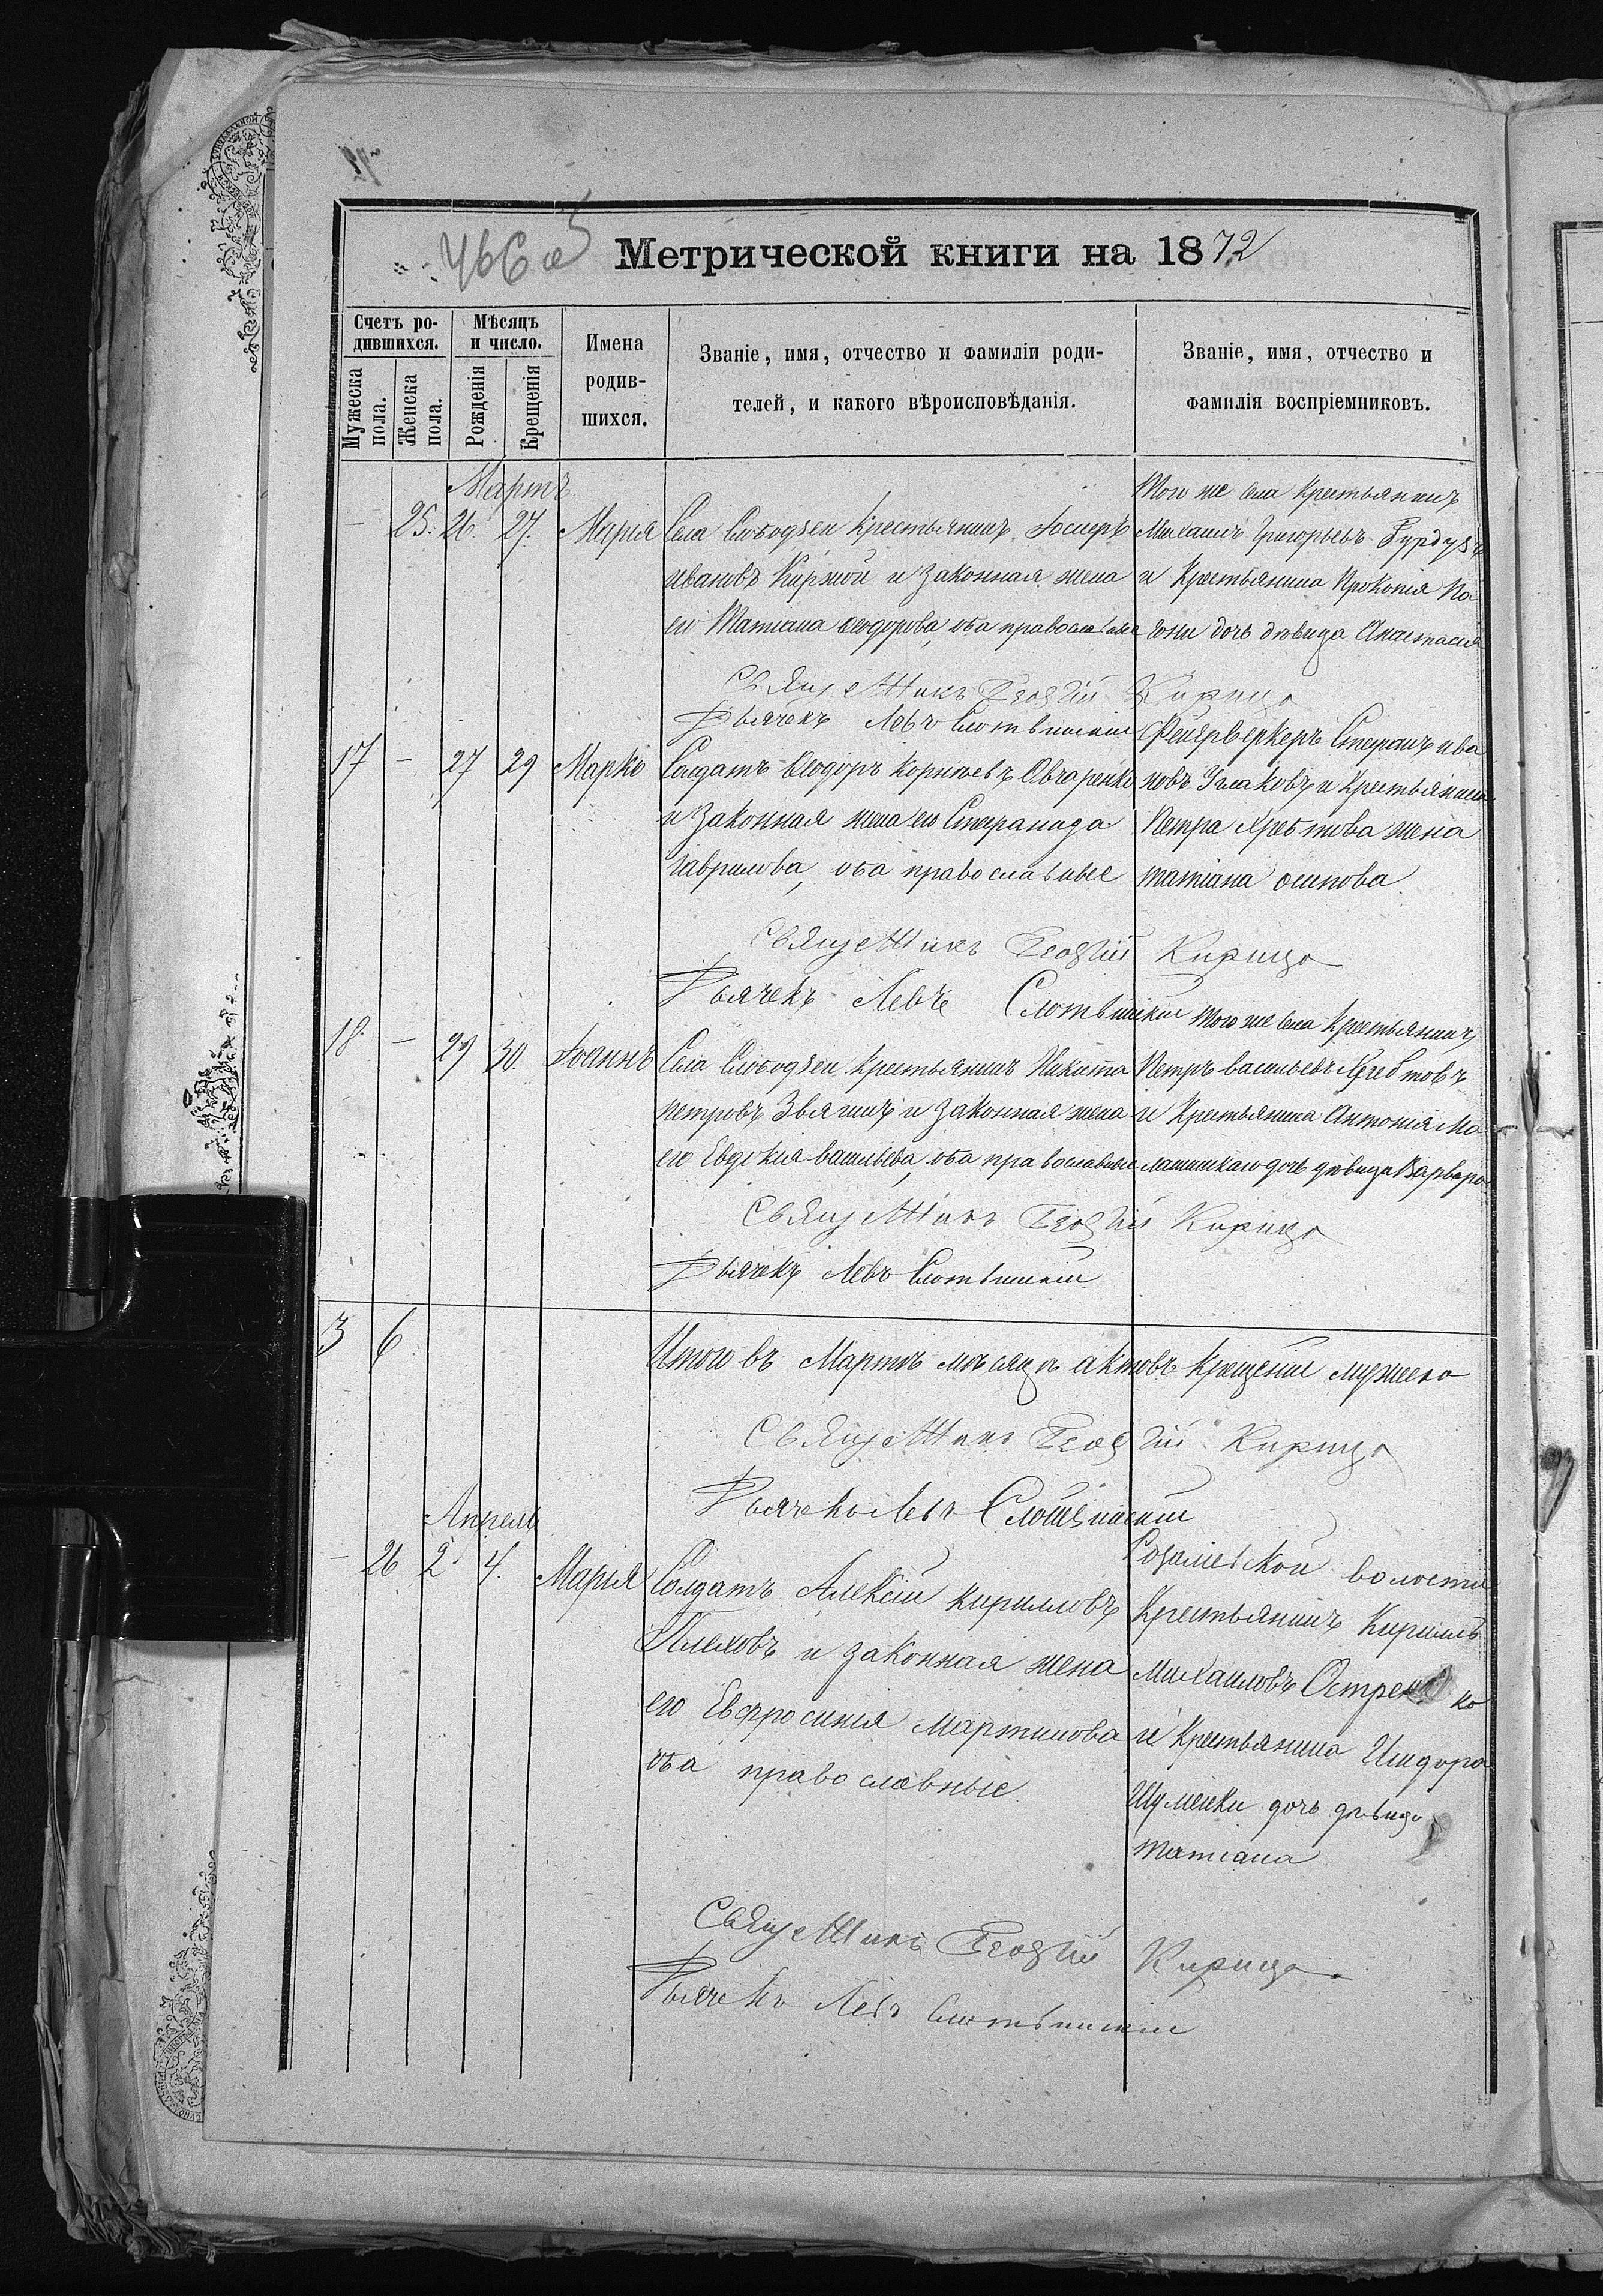 Метрической книги на 1872
Счетъ ро-
дившихся.
Мужеска
пола.
Женска
пола.
Мѣсяцъ
и число.
Рожденія
Крещенія
Имена
родив-
шихся.
Званіе, имя, отчество и фамиліи роди-
телей, и какого вѣроисповѣданія.
Званіе, имя, отчество и
фамилія воспріемниковъ.
Мартъ
- 25. 26. 27. Марія
Села Слободзеи крестьянинъ Іосифъ
ивановъ Кирной и законная жена
его Татіана Ѳеодорова, оба православные
Того же села крестьянинъ
Михаилъ Григорьевъ Бурдузъ
и крестьянина Прокопія По
дочь дѣвица Анастасія
Священникъ Георгій Кирица
Дьячекъ Левъ Слотвинскій
17 - 27 29 Марко
Солдатъ Ѳеодоръ Корнѣевъ Овчаренко
и законная жена его Стефанида
Гаврилова, оба православные
Фейерверкеръ Стефанъ ива
новъ Ушаковъ и крестьянина
Петра Хрѣптова жена
татіана осипова.
Священникъ Георгій Кирица
Дьячекъ Левъ Слотвинскій
18. - 29 30. Іоаннъ
Села Слободзеи крестьянинъ Никита
петровъ Звягинъ и законная жена
его Евдокия васильева, оба православные
того же села крестьянинъ
Петръ васильевъ Хребтовъ
и крестьянина Антонія Ма
дочь дѣвица Варвара
Священникъ Георгій Кирица
Дьячекъ Левъ Слотвинскій
3 6
Итого въ Мартѣ мѣсяцѣ актовъ крещеніи мужеска
Священникъ Георгій Кирица
Дьячекъ Левъ Слотвинскій
Апрель
- 26 2. 4. Марія
Солдатъ Алексій кирилловъ
и законная жена
его Евфросинія Мартинова
оба православные.
волости
Крестьянинъ Кирилъ
Михаиловъ
и Крестьянина Исидора
Шуменки дочь дѣвица
татіана
Священникъ Георгій Кирица
Дьячекъ Левъ Слотвинскій